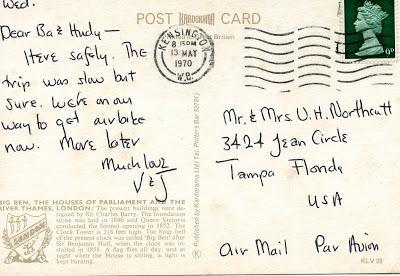 Wed.
POST CARD
KARDORAMA
Dear Ba & Hudy —
Here safely. The
trip was slow but
sure. We're on our
way to get a bite
now. More later
Much love
V & J
KENSINGTON
8 15PM
13 MAY
1970
W.8.
9D
Mr. & Mrs. U. H. Northcutt
3424 Jean Circle
Tampa Florida
USA
Air Mail Par Avion
BIG BEN, THE HOUSES OF PARLIAMENT AND THE
RIVER THAMES, LONDON: The present buildings were de-
signed by Sir Charles Barry. The foundation
stone was laid in 1840 and Queen Victoria
conducted the formal opening in 1852. The
Clock Tower is 316 feet high. The hour bell
of the present clock was called 'Big Ben' after
Sir Benjamin Hall, when the clock was in-
stalled in 1858. A flag flies all day, and at
night when the House is sitting, a light is
kept burning.
LONDON
Produced by Kardorama Ltd (Tel. Potters Bar
KLV 35